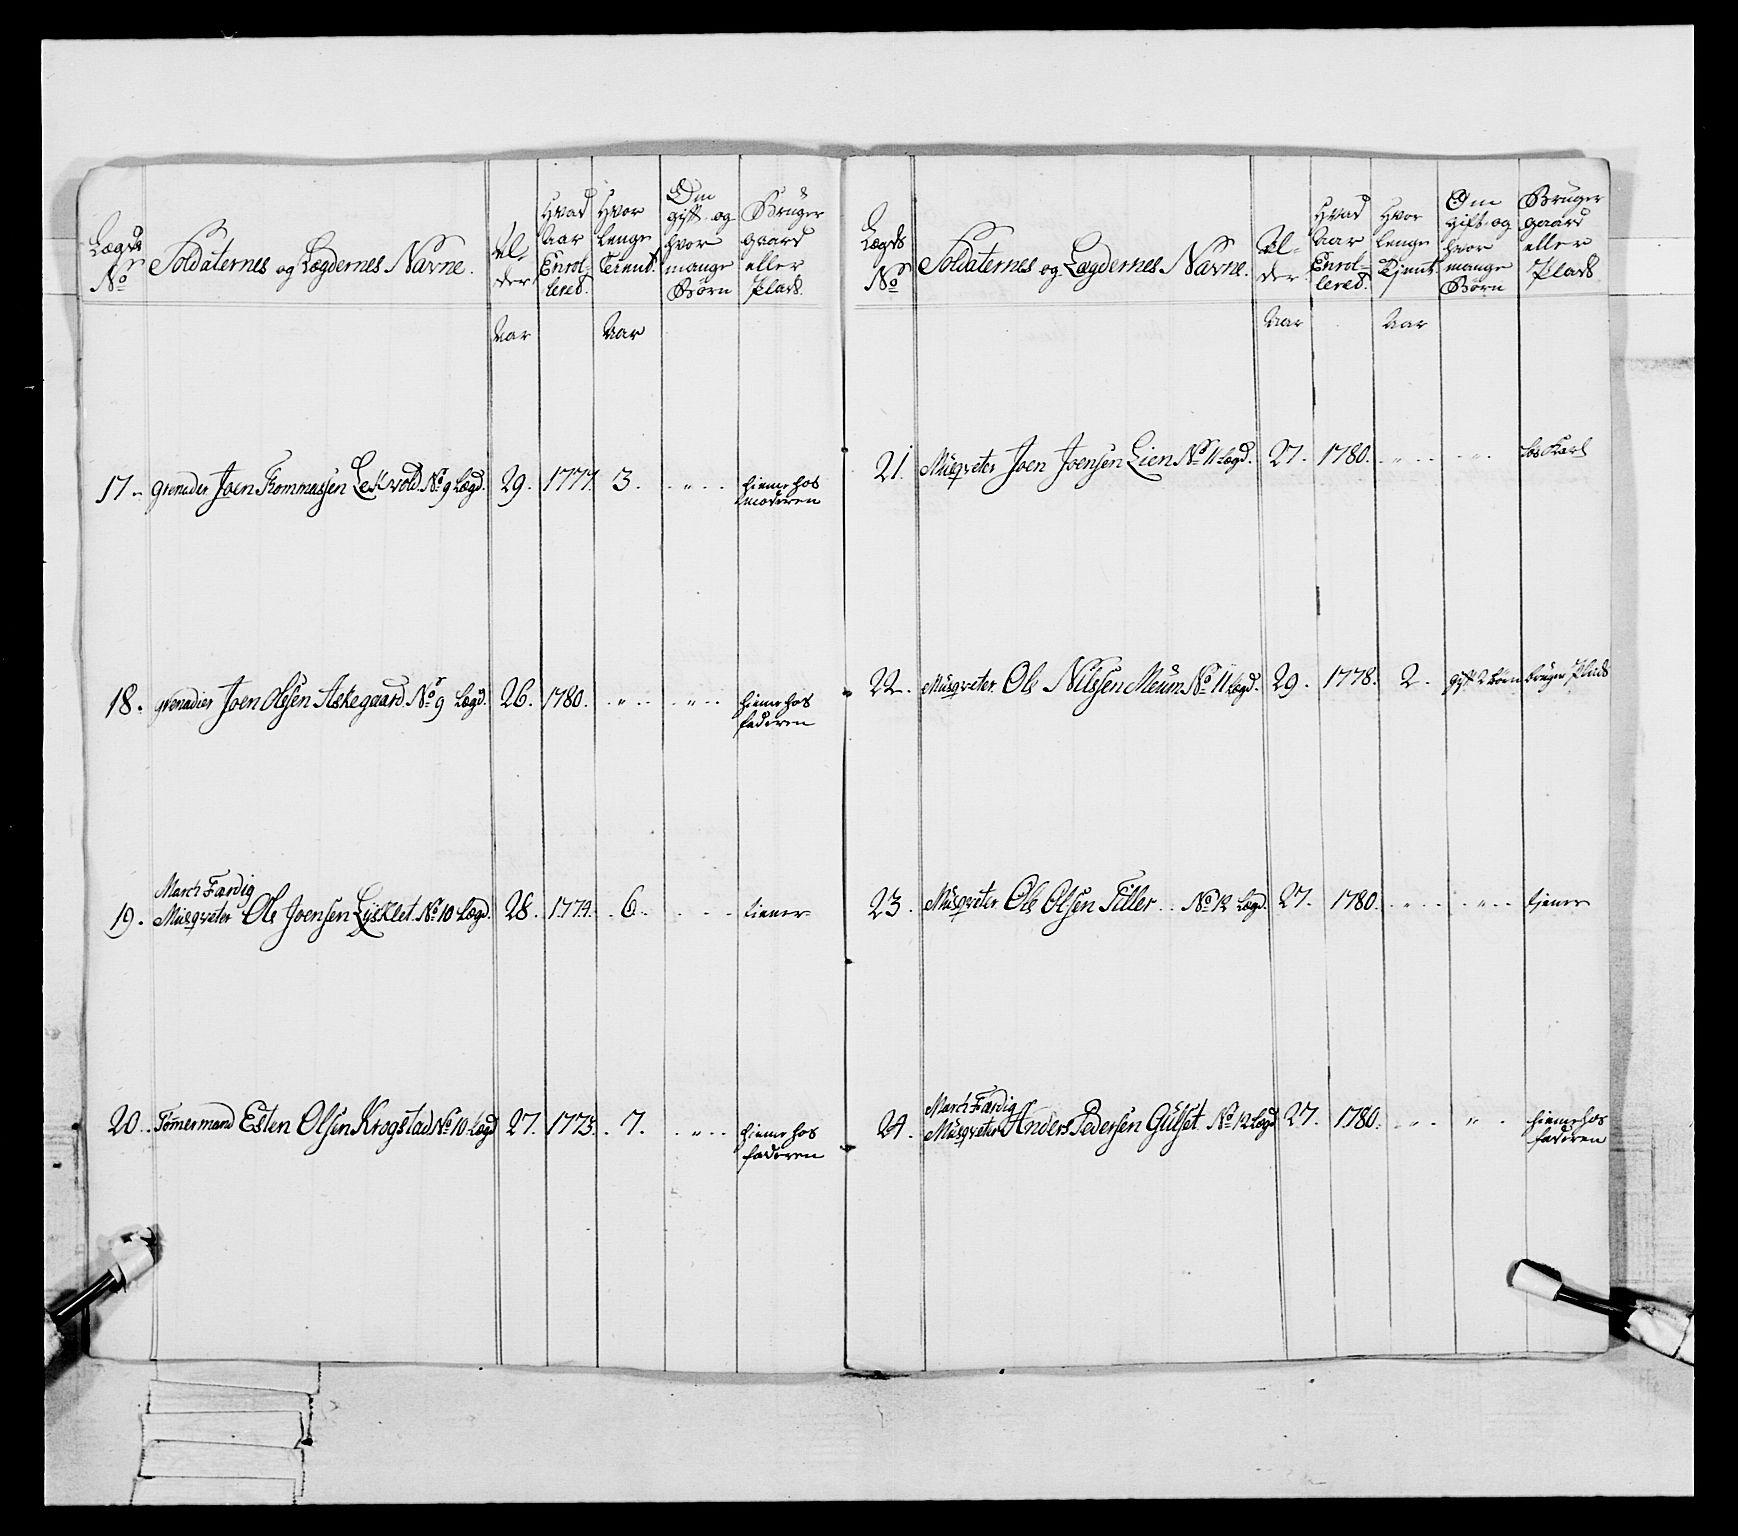 Lægds No
Soldaternes og Lægdernes Navne.
Al-
der
Hvad
Aar
Enrol-
lered.
Hvor
lenge
Tient.
Om
gift og
hvor
mange
Børn
Bruger
gaard
eller
Plads.
Aar
Aar
17. grenader Joen Thommassen Lekvold No 9 Lægd. 29. 1777. 3. " hiemme hos
moderen
18. grenadier Joen Olssen Askegaard No 9 Lægd. 26. 1780. " " hiemme hos
faderen
March Færdig
19. Musqveter Ole Joensen Lysklet No 10 Lægd. 28. 1774. 6. tiener
20. Tømermand Esten Olsen Krogstad No 10 Lægd 27. 1773. 7. " hiemme hos
faderen
Lægds
No
Soldaternes og Lægdernes Navne.
Al-
der
Hvad
Aar
Enrol-
lered.
Hvor
lenge
Tjent.
Om
gift og
hvor
mange
Børn
Bruger
gaard
eller
Plads
Aar
Aar
21. Musqveter Joen Joensen Lien No 11 Lægd. 27. 1780. " " løs Karl
22. Musqveter Ole Nilssen Meum No 11 Lægd. 29. 1778. 2. gift 2 børn bruger Plads
23. Musqveter Ole Olsen Tiller No 12 Lægd. 27. 1780. " " tjener
March Færdig
24. Musqveter Anders Pedersen Gulset No 12 Lægd 27. 1780. " " hiemme hos
faderen